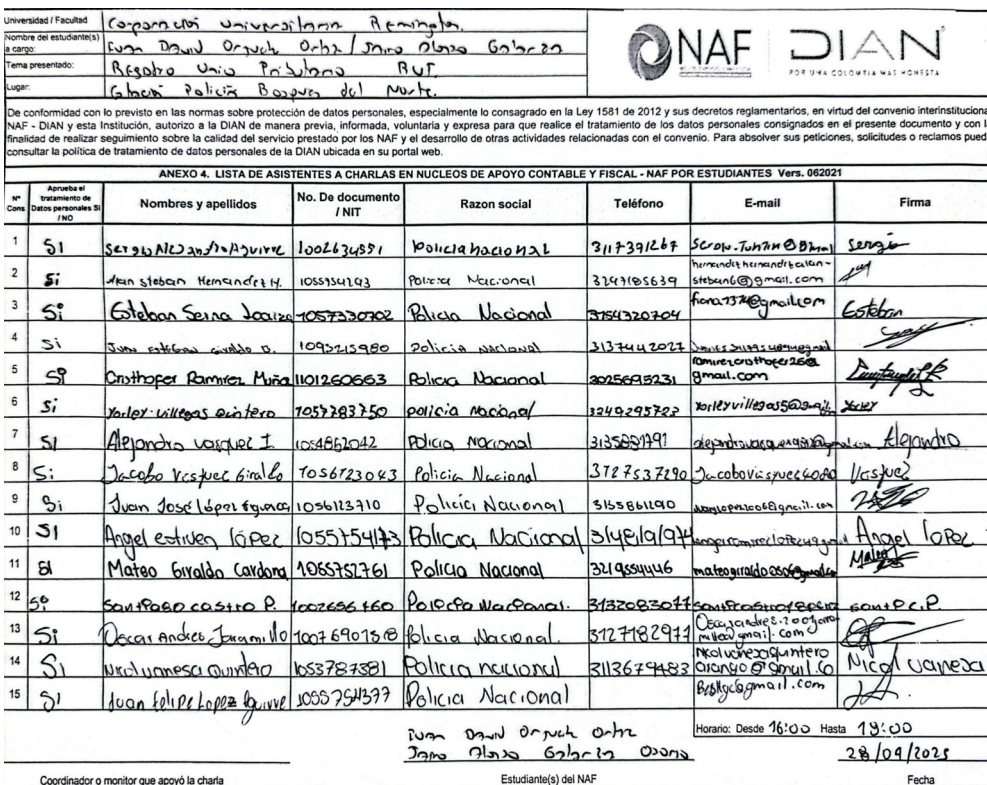 Universidad / Facultad Corporación Universitaria Remington.
Nombre del estudiante(s) a cargo: Ivan David Ortiz / Jairo Alonso
Tema presentado: Registro Unico Tributario RUT.
Lugar: Policia Bosques del Norte.
NAF DIAN
POR UNA COLOMBIA MAS HONESTA
De conformidad con lo previsto en las normas sobre protección de datos personales, especialmente lo consagrado en la Ley 1581 de 2012 y sus decretos reglamentarios, en virtud del convenio interinstituciona
NAF - DIAN y esta Institución, autorizo a la DIAN de manera previa, informada, voluntaria y expresa para que realice el tratamiento de los datos personales consignados en el presente documento y con l
finalidad de realizar seguimiento sobre la calidad del servicio prestado por los NAF y el desarrollo de otras actividades relacionadas con el convenio. Para absolver sus peticiones, solicitudes o reclamos pued
consultar la política de tratamiento de datos personales de la DIAN ubicada en su portal web.
ANEXO 4. LISTA DE ASISTENTES A CHARLAS EN NUCLEOS DE APOYO CONTABLE Y FISCAL - NAF POR ESTUDIANTES Vers. 062021
N° Cons Aprueba el tratamiento de Datos personales SI / NO Nombres y apellidos No. De documento / NIT Razon social Teléfono E-mail Firma
1 SI Sergio Aguirre 1002634551 Policia nacional 3117391267 Sergio
2 Si Alan steban Hernandez H. Policia Nacional 3297185639 steban6@gmail.com
3 Si Esteban Serna Loaiza 1057330702 Policia Nacional 3154320704 Esteban
4 Si Juan esteban giraldo 1093215980 Policia Nacional 3137442027
5 Si Cristhofer Ramirez 1101260663 Policia Nacional 3025695231 ramirezcristhofer26@gmail.com
6 Si Yorley villegas Quintero 1057783750 policia nacional 3249295723 Yorley
7 SI Alejandro vasquez I. 1054862042 Policia Nacional Alejandro
8 Si Jacobo Vasquez Giraldo 1056123043 Policia Nacional 3127537290 Vasquez
9 Si Juan José lópez 1056123710 Policia Nacional 3155861290
10 SI Angel estiven lópez 1055754173 Policia Nacional Angel lopez
11 SI Mateo Giraldo Cardona 1055752761 Policia Nacional 3219554446 Mateo
12 Si Santiago castro P. Policia Nacional. 3132083077 santi c.P.
13 Si Oscar Andres Jaramillo Policia Nacional. 3127182977
14 Si Nicol vanesa Quintero 1053787381 Policia nacional 3113679483 Nicol vanesa
15 Si Juan felipe Lopez Aguirre Policia Nacional
Ivan David Ortiz
Jairo Alonso Osorio
Horario: Desde 16:00 Hasta 19:00
28/09/2025
Coordinador o monitor que apoyó la charla Estudiante(s) del NAF Fecha